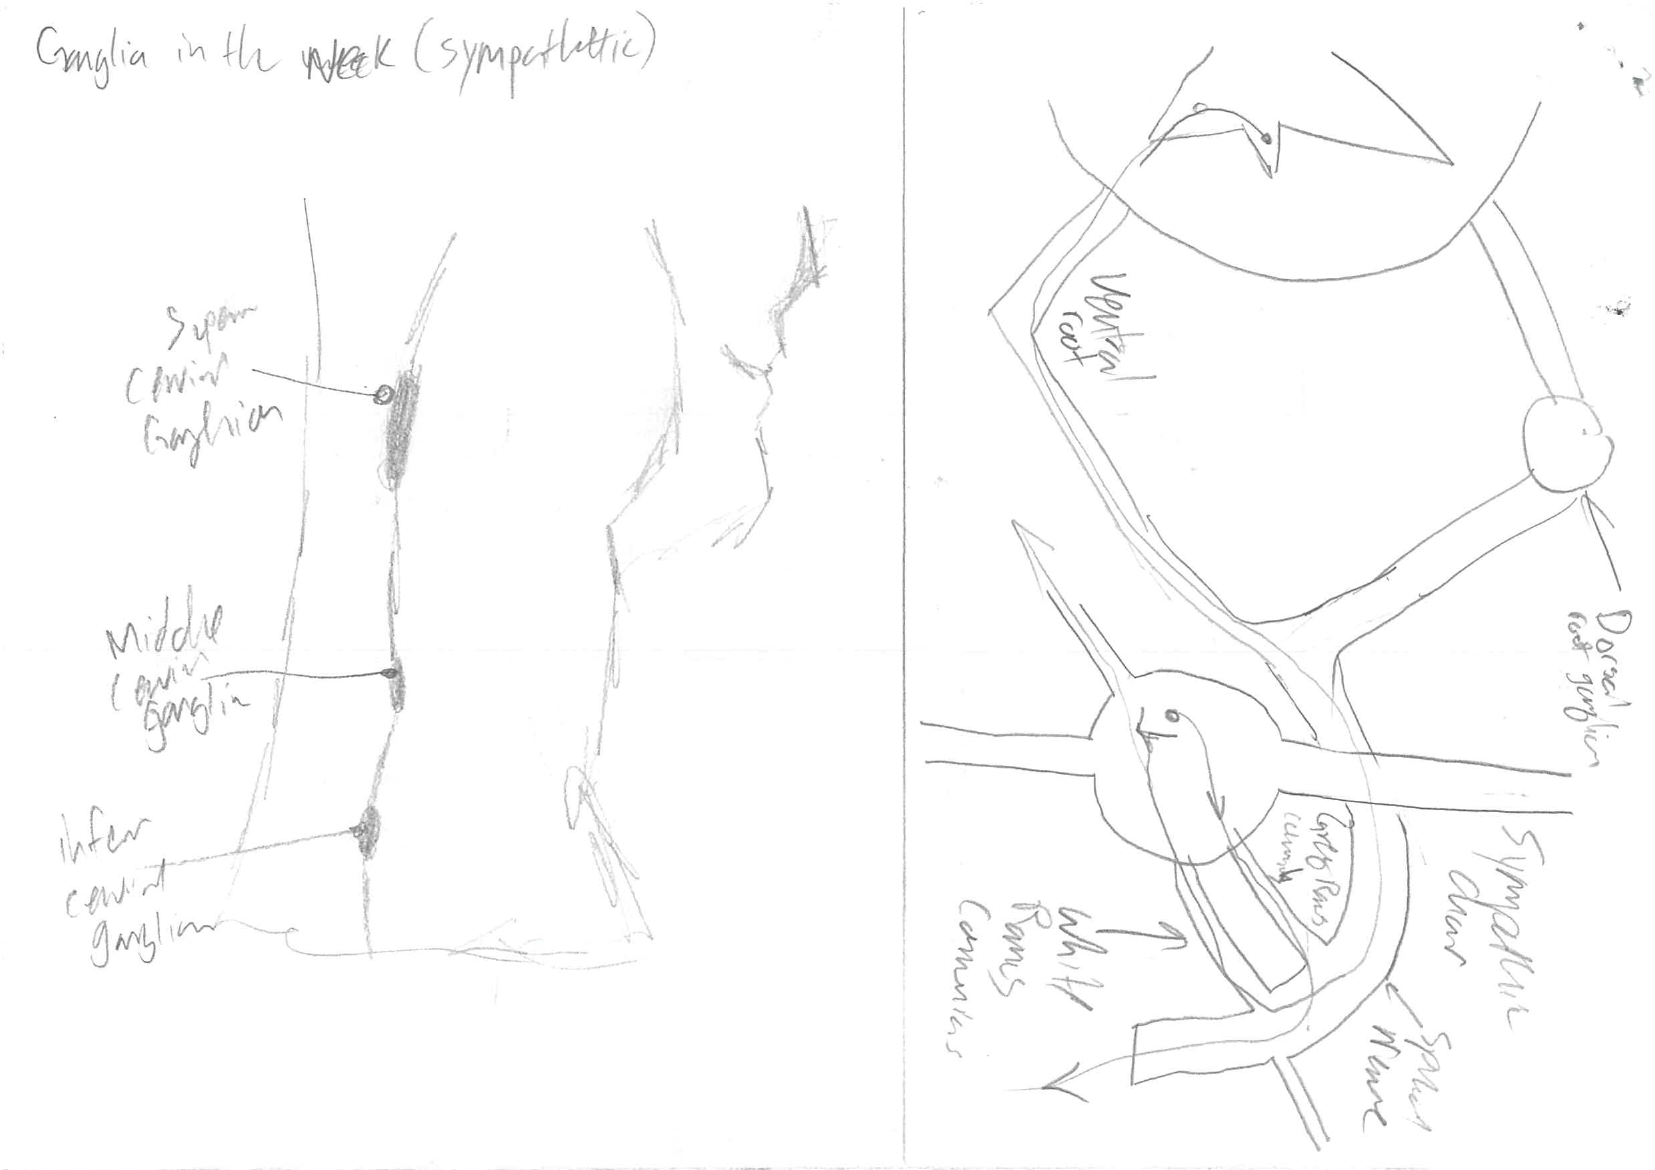 Ganglia in the Neck (sympathettic)
Superior
Cervical
Ganglion
Middle
Cervical
ganglia
Inferior
cervical
ganglion
Ventral
root
Dorsal
root ganglion
Grey Ramus
Sympathetic
chain
White
Ramus
Spinal
Nerve